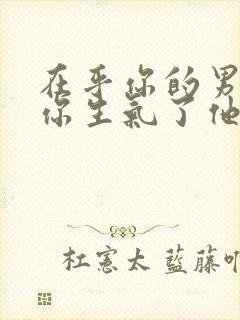 在乎你的男
你生氣了他
杜憲太 藍藤